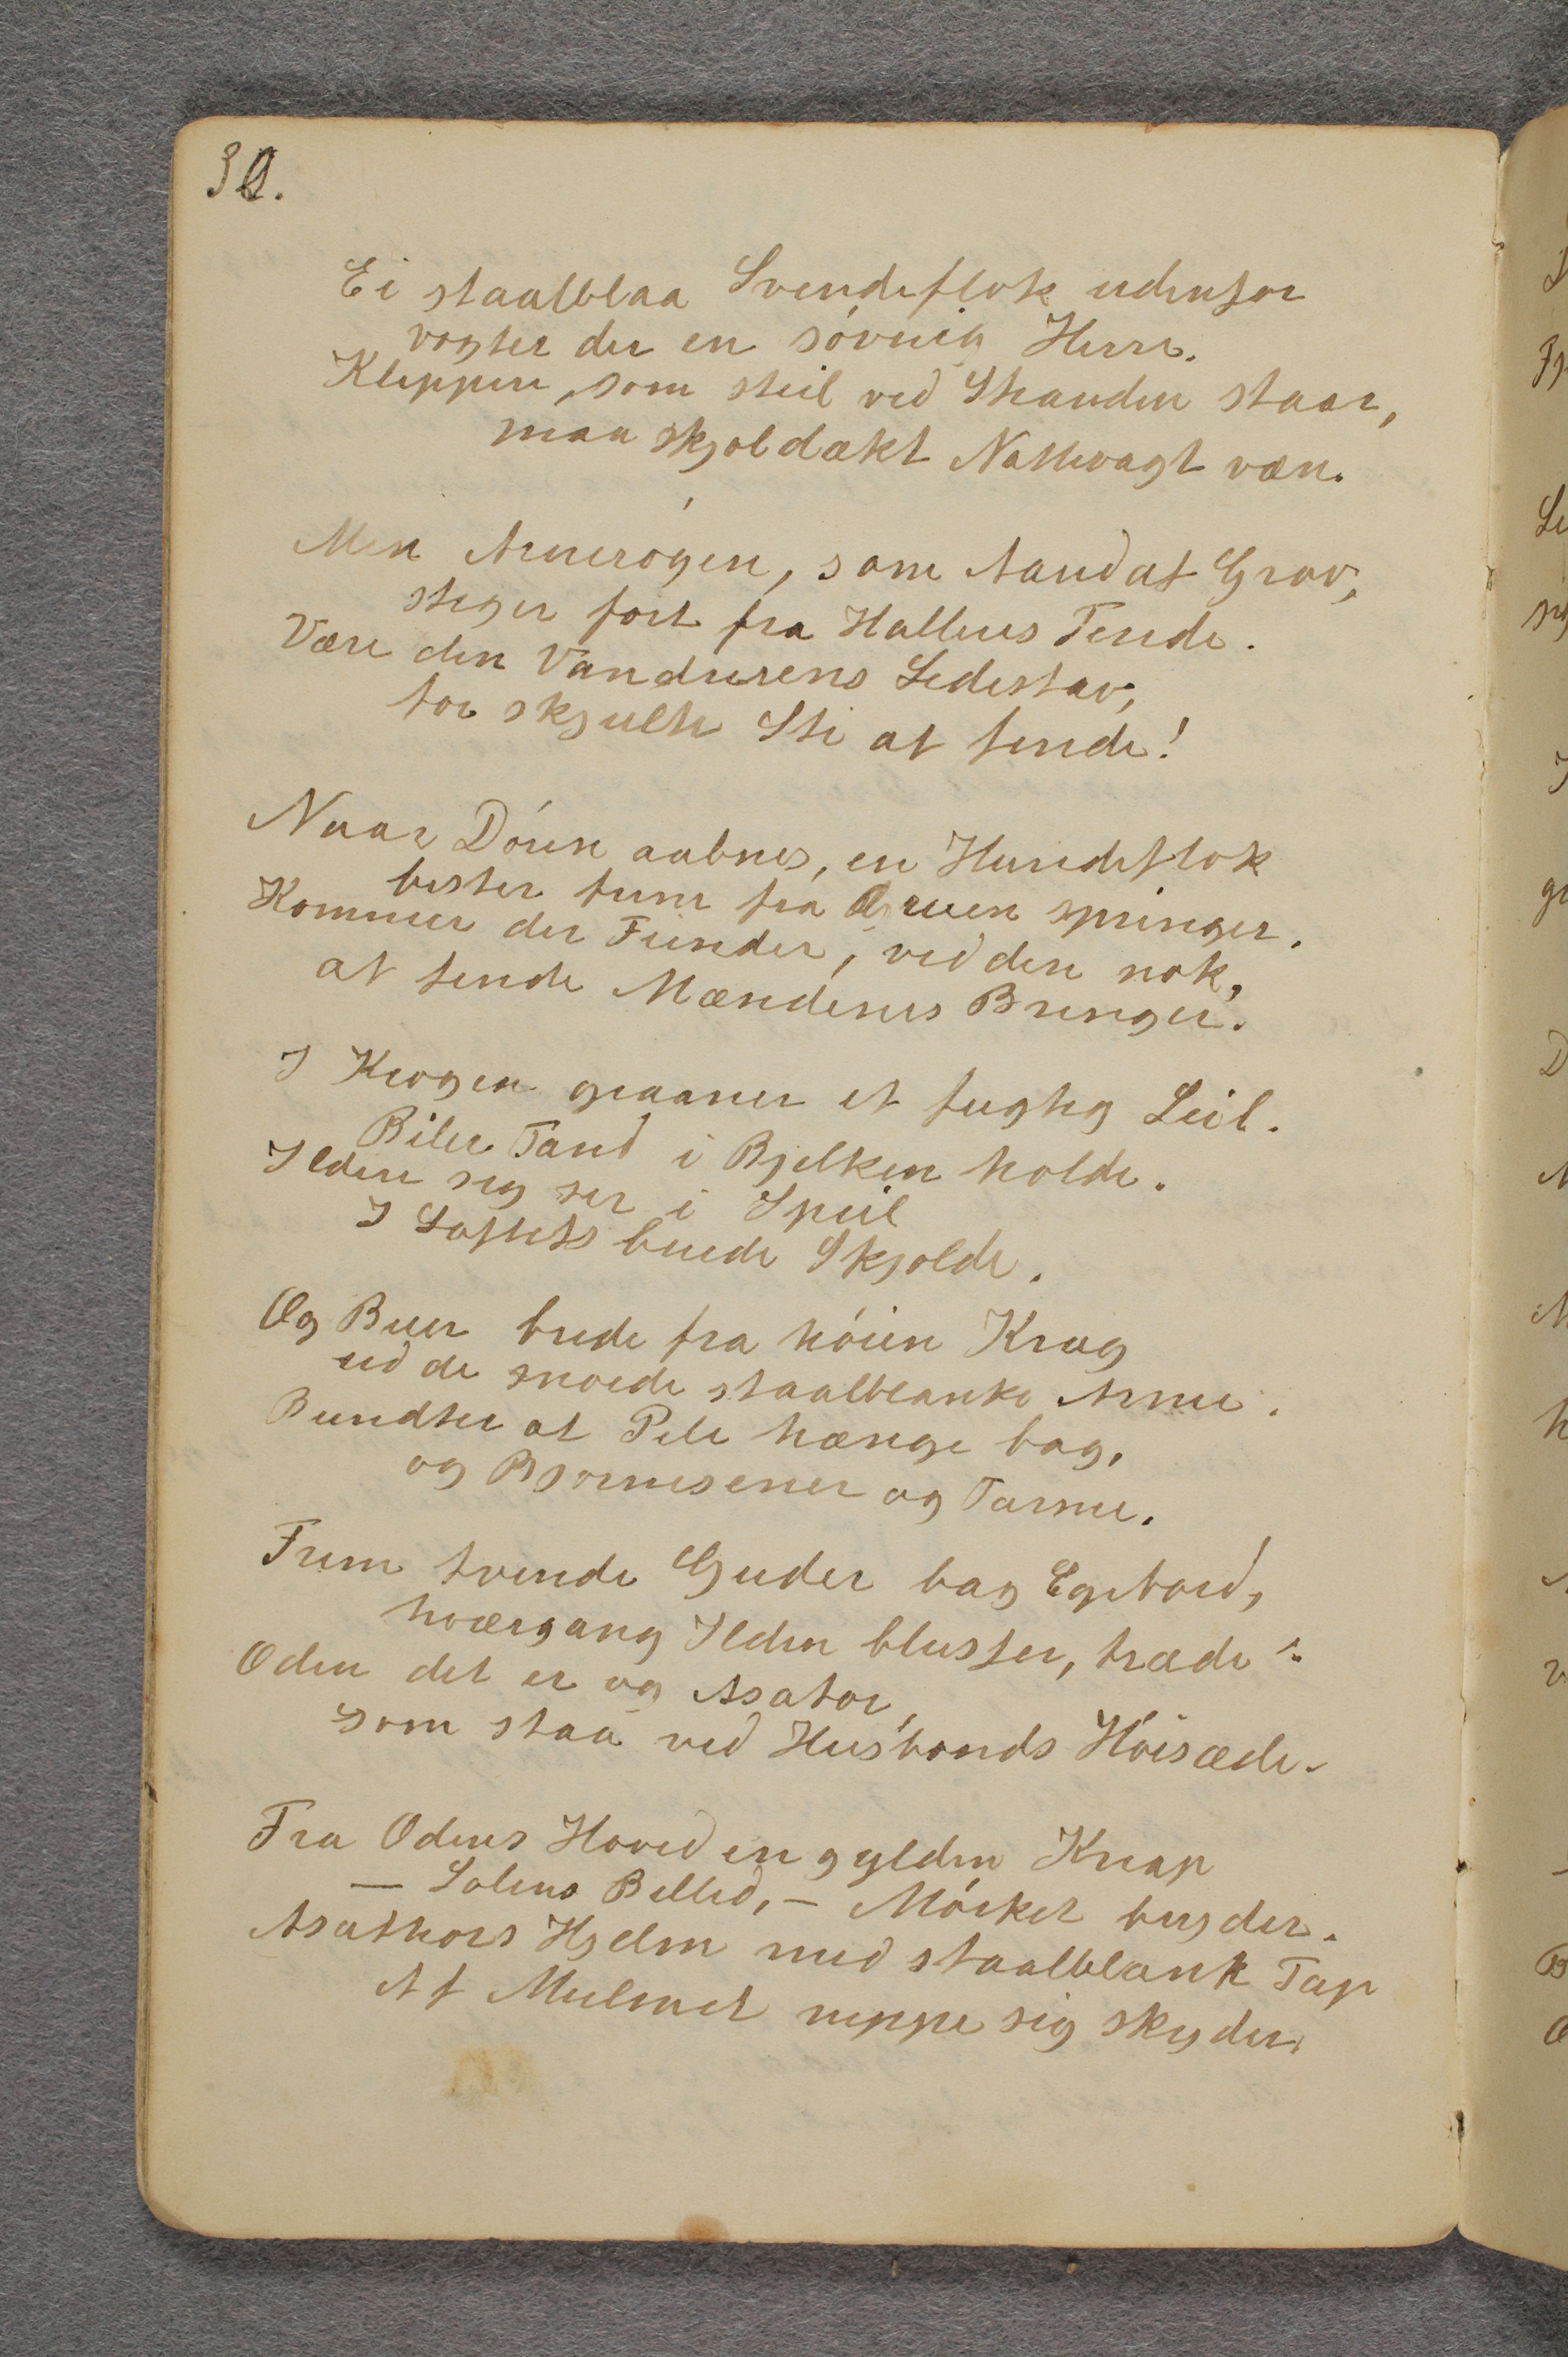 30.
Ei staalblaa Svendeflok udenfor
vogter der en sóvnig Herre.
Klippen, som steil ved Stranden staar,
maa skjoldækt Nattevagt være.
Men Arnerógen, som Aand af Grav,
stiger fort fra Hallens Tinde.
Være den Vandrerens Ledestav,
for skjulte Sti at finde!
Naar Dóren aabnes, en Hundeflok
bister frem fra Gruen springer.
Kommer der Fiender, ved den nok,
at finde Mændenes Bringer.
I Krogen graaner et fugtig Seil.
Biler Tand i Bjelken holde.
Ilden sig ser i Speil
I Loftets buede Skjolde.
Og Buer brede fra hóien Krog
ud de snoede staalblanke Arme.
Bundter af Pile hænge bag,
og Bjornesener og Tarme.
Frem tvende Guder bag Egebord,
hvergang Ilden blusser, træde:
Oden det er og Asator,
som staa ved Husbonds Hóisæde.
Fra Odens Hoved en gylden Knap
— Solens Billed, — Mórket bryder.
Asathors Hjelm med staalblank Tap
Af Mulmet neppe sig skyder.